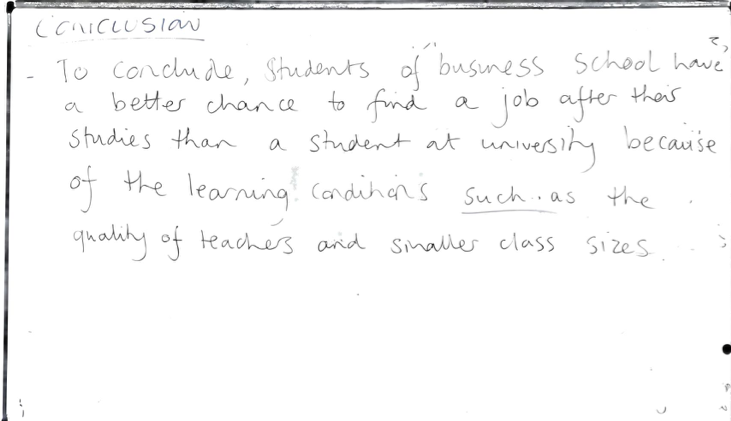 CONCLUSION
- To conclude, students of business school have
a better chance to find a job after their
studies than a student at university because
of the learning conditions such as the
quality of teachers and smaller class sizes